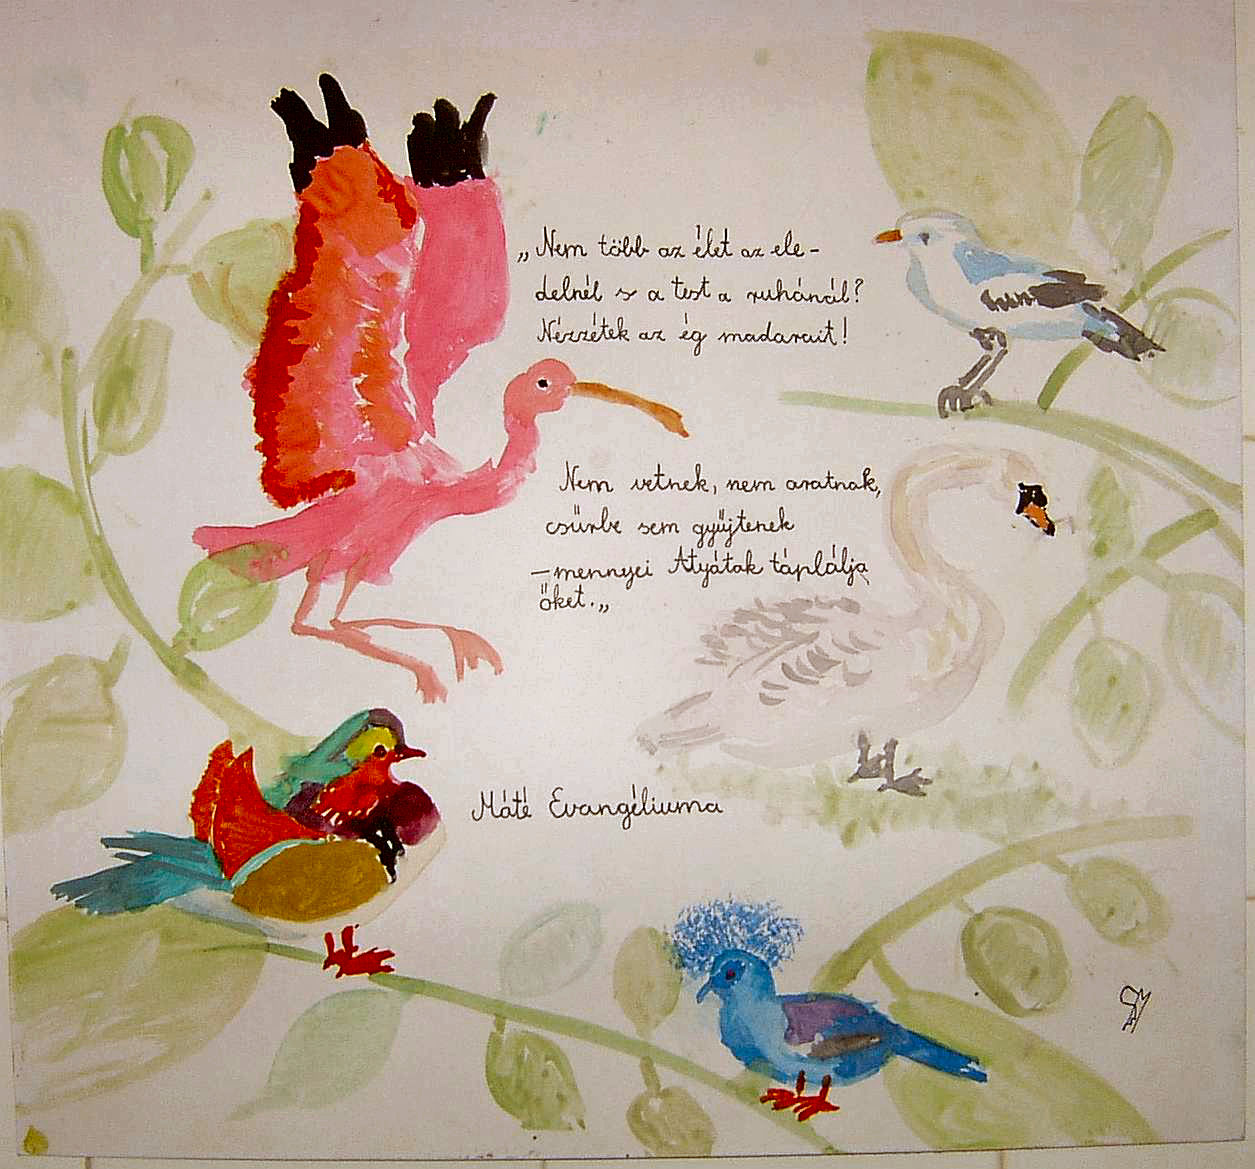 „Nem több az élet az ele-
delnél s a test a ruhánál?
Nézzétek az ég madarait!
Nem vetnek, nem aratnak,
csűrbe sem gyűjtenek
– mennyei Atyátok táplálja
őket.„
Máté Evangéliuma